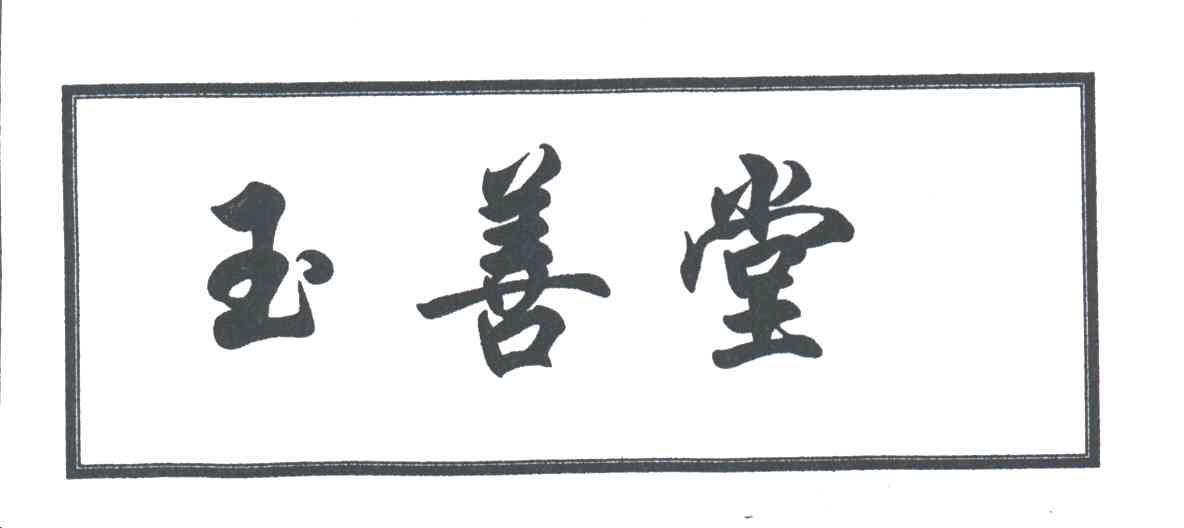 玉善堂